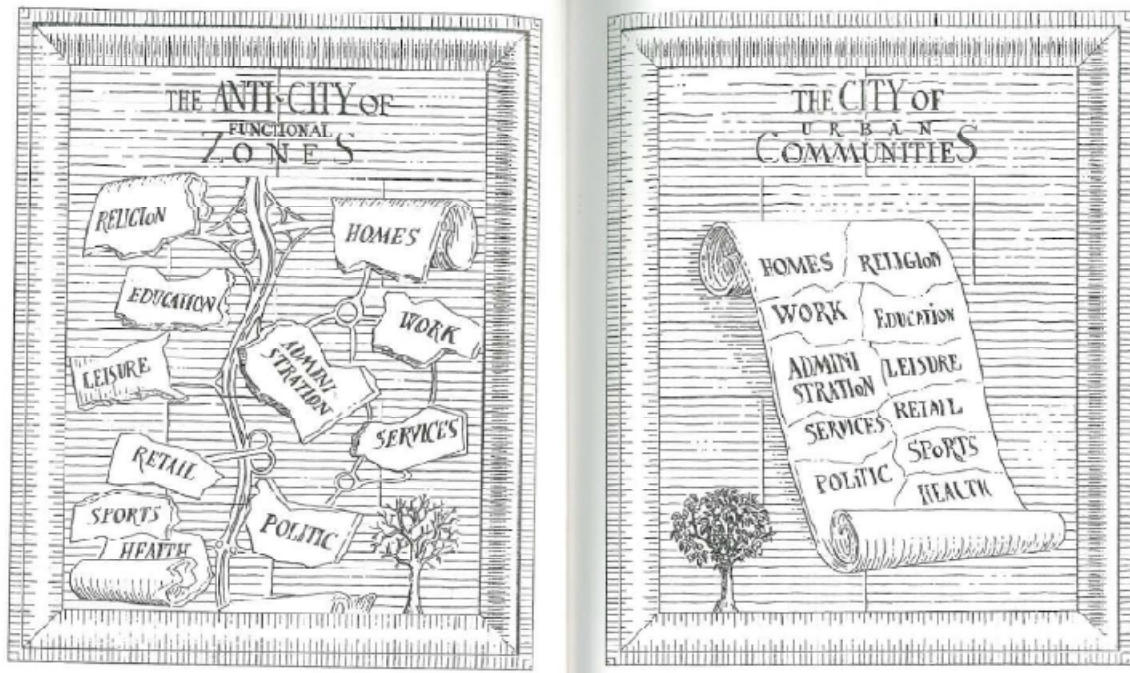 THE ANTI-CITY OF
FUNCTIONAL
ZONES
RELIGION
HOMES
EDUCATION
WORK
LEISURE
ADMINI
STRATION
SERVICES
RETAIL
SPORTS
POLITIC
HEALTH
THE CITY OF
URBAN
COMMUNITIES
HOMES RELIGION
WORK EDUCATION
ADMINI
STRATION LEISURE
SERVICES RETAIL
POLITIC SPORTS
HEALTH